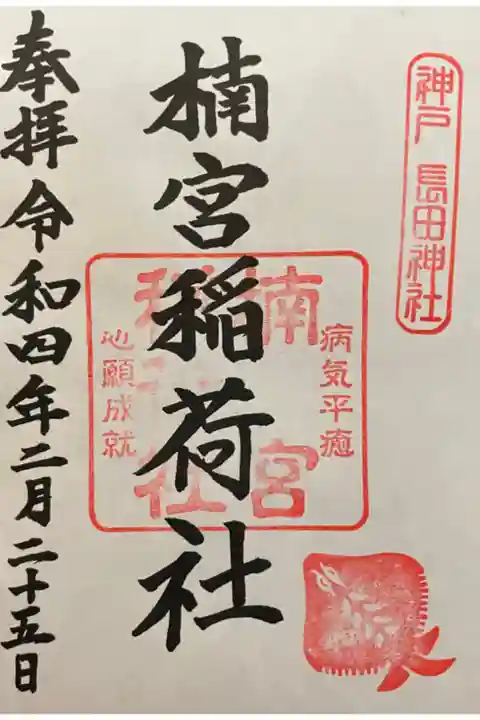 神戸 長田神社
病気平癒
楠宮
稲荷社
心願成就
楠宮稲荷社
奉拝 令和四年二月二十五日